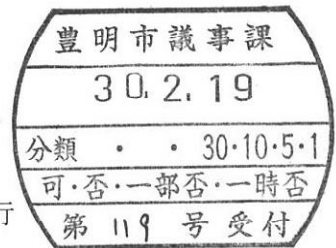 豊明市議事課
30.2.19
分類 ・ ・ 30・10・5・1
可・否・一部否・一時否
行
第 119 号受付